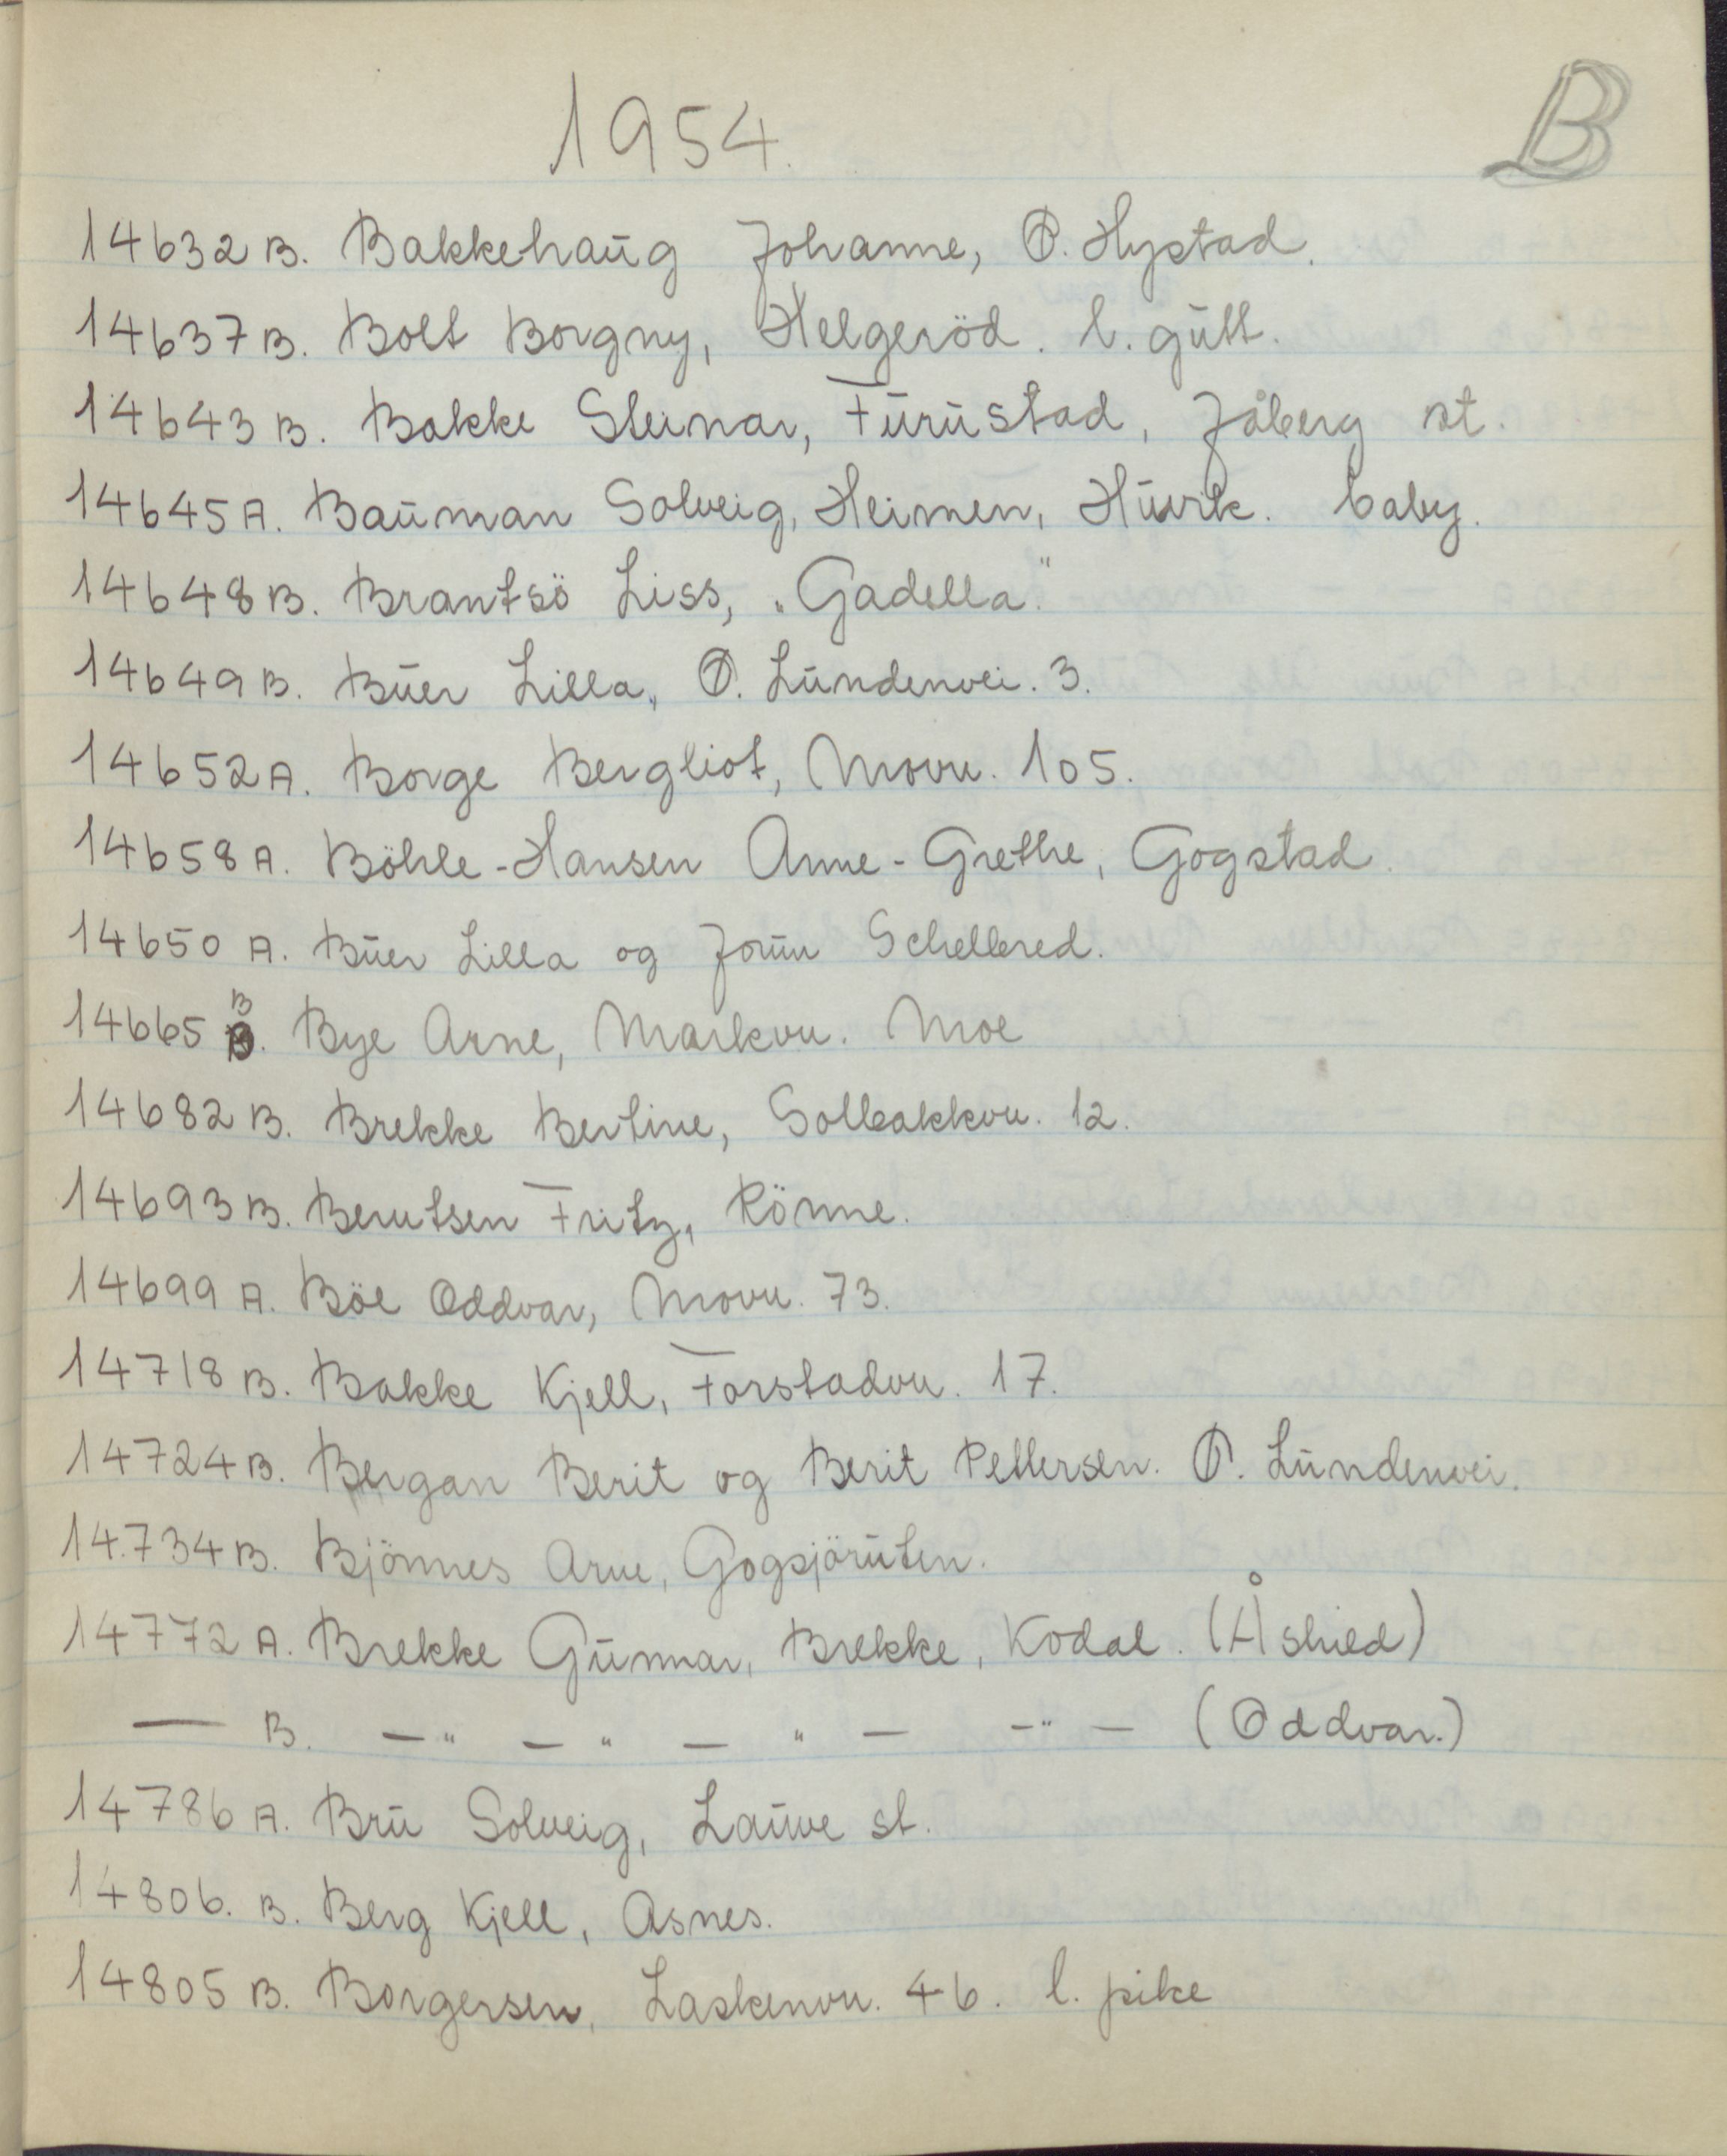 1954.
B
14632 B. Bakkehaug Johanne, Ø. Hystad.
14637 B. Bolt Borgny, Helgeröd. l. gutt.
14643 B. Bakke Steinar, Furustad, Jåberg st.
14645 A. Bauman Solveig, Heimen, Huvik. baby.
14648 B. Brantsö Liss, „Gadella."
14649 B. Buer Lilla, Ø. Lundenvei. 3.
14652 A. Borge Bergliot, Movn. 105.
14658 A. Böhle-Hansen Anne-Grethe, Gogstad.
14650 A. Buer Lilla og Jorun Schellered.
14665 B. Bye Arne, Markvn. Moe
14682 B. Brekke Bertine, Solbakkvn. 12.
14693 B. Berntsen Fritz, Rönne.
14699 A. Böe Oddvar, Movn. 73.
14718 B. Bakke Kjell, Forstadvn. 17.
14724 B. Bergan Berit og Berit Pettersen. Ø. Lundenvei.
14.734 B. Bjönnes Arne, Gogsjöruten.
14772 A. Brekke Gunnar, Brekke, Kodal. (Åshild)
— B. —„ — „ — „ — -„ — (Oddvar.)
14786 A. Bru Solveig, Lauve st.
14806. B. Berg Kjell, Asnes.
14805 B. Borgersen, Laskenvn. 46. l. pike